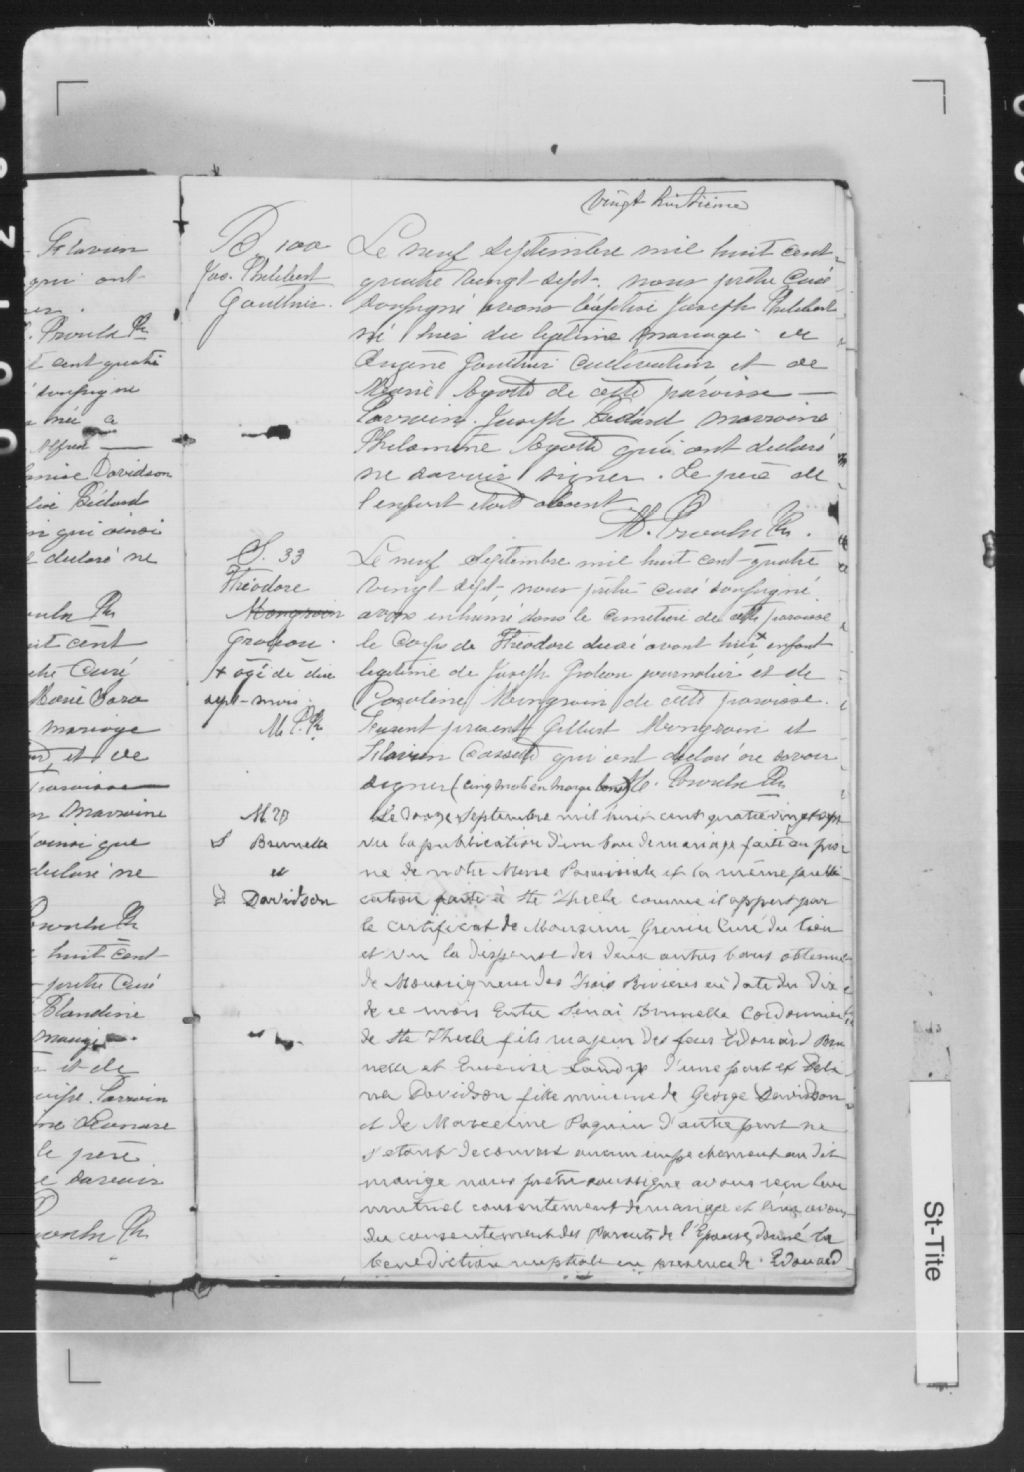 vingt huitième
Flavien
qui ont
Proulx Ptre
t cent quatre
soussigné
née
Alfred
Davidson
Bédard
qui ainsi
declaré ne
Ptre
cent
Curé
Marie
mariage
et de
paroisse
marraine
ainsi que
declaré ne
Proulx Ptre
huit cent
prêtre Curé
Blandine
mariage
et de
Parrain
le père
savoir
Proulx Ptre
B 100
Jos. Philibert
Gauthier.
Le neuf Septembre mil huit cent
quatre vingt sept, nous prêtre Curé
soussigné avons baptisé Joseph Philibert
né hier du légitime mariage de
Eugène Gauthier cultivateur et de
Marie Ayotte de cette paroisse —
Parrain Joseph Bédard marraine
Philomène Ayotte qui ont declaré
ne savoir signer. Le père de
l'enfant etait absent.
M. Proulx Ptre.
S. 33
Théodore
Mongrain
Groleau.
+ agé de dix
sept mois
M. P. Ptre
Le neuf Septembre mil huit cent quatre
vingt sept, nous prêtre curé soussigné
avons inhumé dans le cimetière de cette paroisse
le corps de Théodore décédé avant hier + enfant
legitime de Joseph Groleau journalier et de
Caroline Mongrain de cette paroisse.
Furent present Gilbert Mongrain et
Flavien Cossette qui ont declaré ne savoir
signer (cinq mots en marge bons) M. Proulx Ptre
M 20
S Brunelle
et
D Davidson
Le douze Septembre mil huit cent quatrevingt sept
vu la publication d'un ban de mariage faite au pro
ne de notre Messe Paroissiale et la même publi
cation faite à Ste Thecle comme il appert par
le certificat de Monsieur Grenier Curé du lieu
et vu la dispense des deux autres bans obtenue
de Monseigneur des Trois Rivieres en date du Dix
de ce mois Entre Sinaï Brunelle Cordonnier
de Ste Thecle fils majeur des feus Edouard Bru
nelle et Landry d'une part et Deli
na Davidson fille mineure de George Davidson
et de Marceline Paquin d'autre part ne
s'etant decouvert aucun empechement au dit
mariage nous pretre soussigne avons reçu leur
mutuel consentement de mariage et leur avons
du consentement des Parents de l'Epouse donné la
benediction nuptiale en presence de Edouard
St-Tite